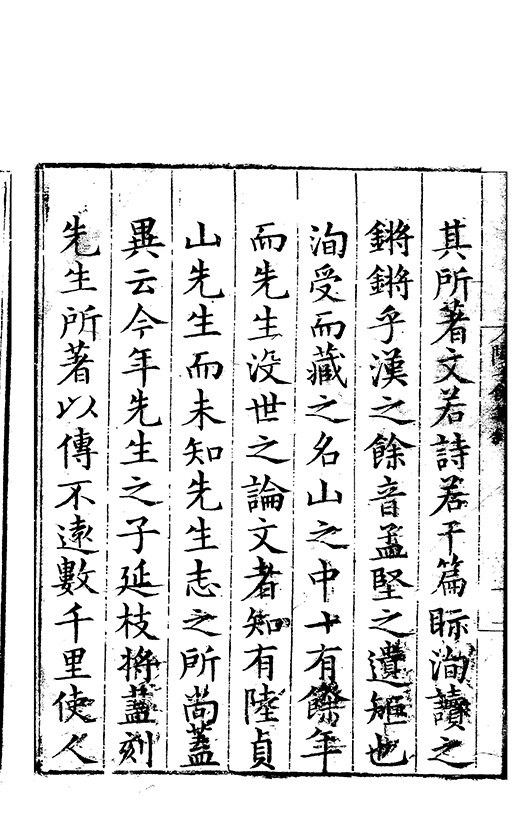 其所著文若詩若干篇眎洵讀之
鏘鏘乎漢之餘音孟堅之遺矩也
洵受而藏之名山之中十有餘年
而先生没世之論文者知有陸貞
山先生而未知先生志之所尚蓋
異云今年先生之子延枝將盡刻
先生所著以傳不遠數千里使人